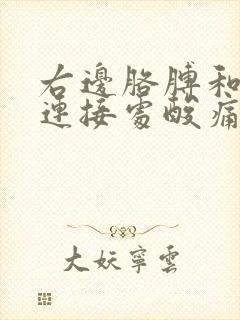 右邊胳膊和
連接處酸痛
大妖寧雲